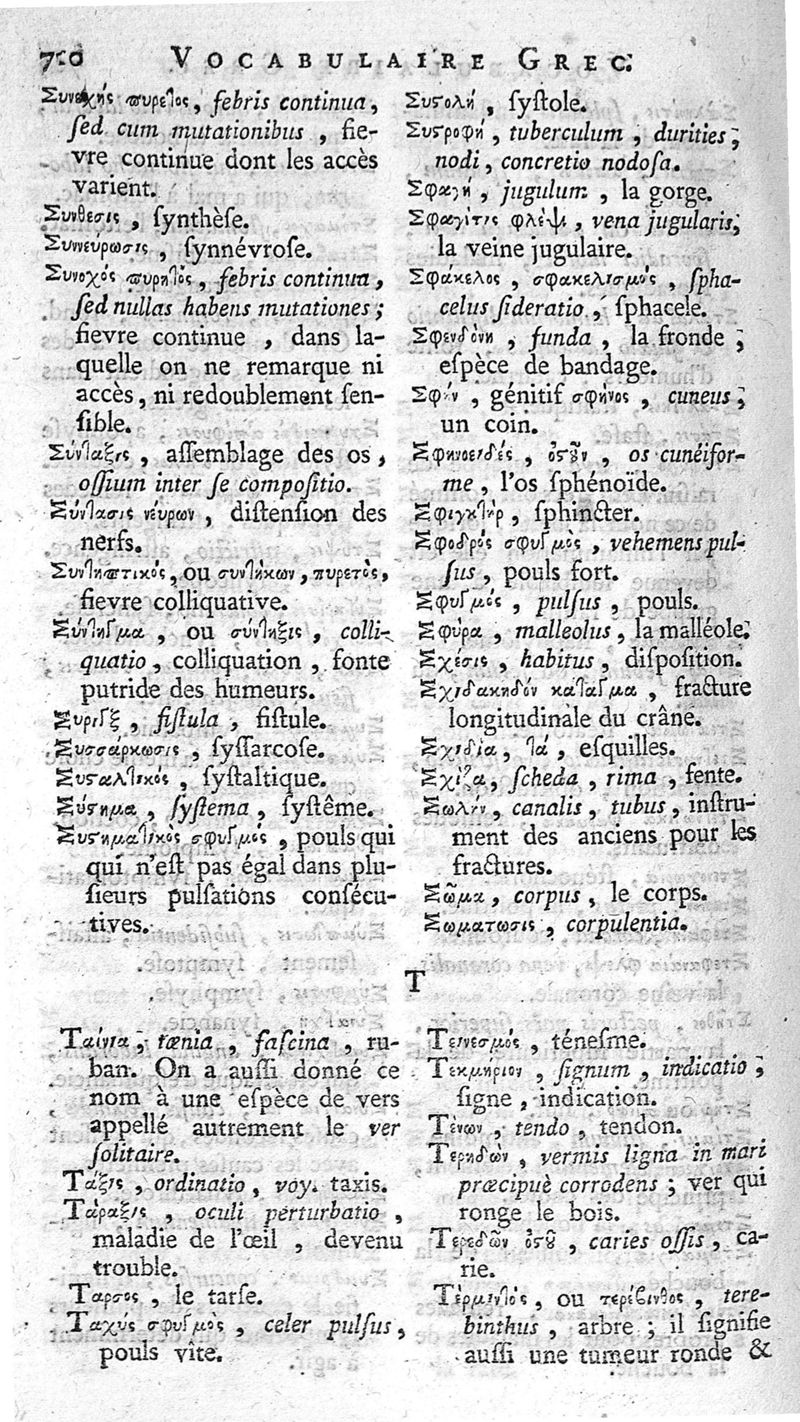 710 VOCABULAIRE GREC.
Συνεχὴς πυρετος, febris continua,
ſed cum mutationibus, fie-
vre continue dont les accès
varient.
Συνθεσις, ſynthèſe.
Συννεύρωσις, ſynnévroſe.
Συνοχός πυρητός, febris continua,
ſed nullas habens mutationes;
fievre continue, dans la-
quelle on ne remarque ni
accès, ni redoublement ſen-
ſible.
Σύνταξις, aſſemblage des os,
oſſium inter ſe compoſitio.
Σύντασις νεύρων, diſtenſion des
nerfs.
Συντηπτικός, ou συντήκων, πυρετὸς,
fievre colliquative.
Σύντηγμα, ou σύντηξις, colli-
quatio, colliquation, fonte
putride des humeurs.
Συριγξ, fiſtula, fiſtule.
Συσσάρκωσις, ſyſſarcoſe.
Συσταλτικός, ſyſtaltique.
Σύστημα, ſyſtema, ſyſtême.
Συστηματικὸς σφυγμός, pouls qui
qui n'eſt pas égal dans plu-
ſieurs pulſations conſécu-
tives.
Συστολή, ſyſtole.
Συστροφή, tuberculum, durities;
nodi, concretio nodoſa.
Σφαγή, jugulum, la gorge.
Σφαγίτις φλέψ, vena jugularis;
la veine jugulaire.
Σφάκελος, σφακελισμός, ſpha-
celus ſideratio, ſphacele.
Σφενδόνη, funda, la fronde;
eſpèce de bandage.
Σφήν, génitif σφηνος, cuneus;
un coin.
Σφηνοειδές, ὀστοῦν, os cunéifor-
me, l'os ſphénoïde.
Σφιγκτὴρ, ſphincter.
Σφοδρός σφυγμὸς, vehemens pul-
ſus, pouls fort.
Σφυγμός, pulſus, pouls.
Σφύρα, malleolus, la malléole.
Σχέσις, habitus, diſpoſition.
Σχιδακηδόν καταγμα, fracture
longitudinale du crâne.
Σχιδία, τά, eſquilles.
Σχίζα, ſcheda, rima, fente.
Σωλὴν, canalis, tubus, inſtru-
ment des anciens pour les
fractures.
Σῶμα, corpus, le corps.
Σωματωσις, corpulentia.
T
Ταίνια, tænia, faſcina, ru-
ban. On a auſſi donné ce
nom à une eſpèce de vers
appellé autrement le ver
ſolitaire.
Τάξις, ordinatio, voy. taxis.
Τάραξις, oculi perturbatio,
maladie de l'œil, devenu
trouble.
Ταρσος, le tarſe.
Ταχύς σφυγμὸς, celer pulſus,
pouls vîte.
Τεινεσμός, téneſme.
Τεκμήριον, ſignum, indicatio;
ſigne, indication.
Τένων, tendo, tendon.
Τερηδὼν, vermis ligna in mari
præcipuè corrodens; ver qui
ronge le bois.
Τερεδῶν ὀστοῦ, caries oſſis, ca-
rie.
Τέρμινθος, ou τερέβινθος, tere-
binthus, arbre; il ſignifie
auſſi une tumeur ronde &